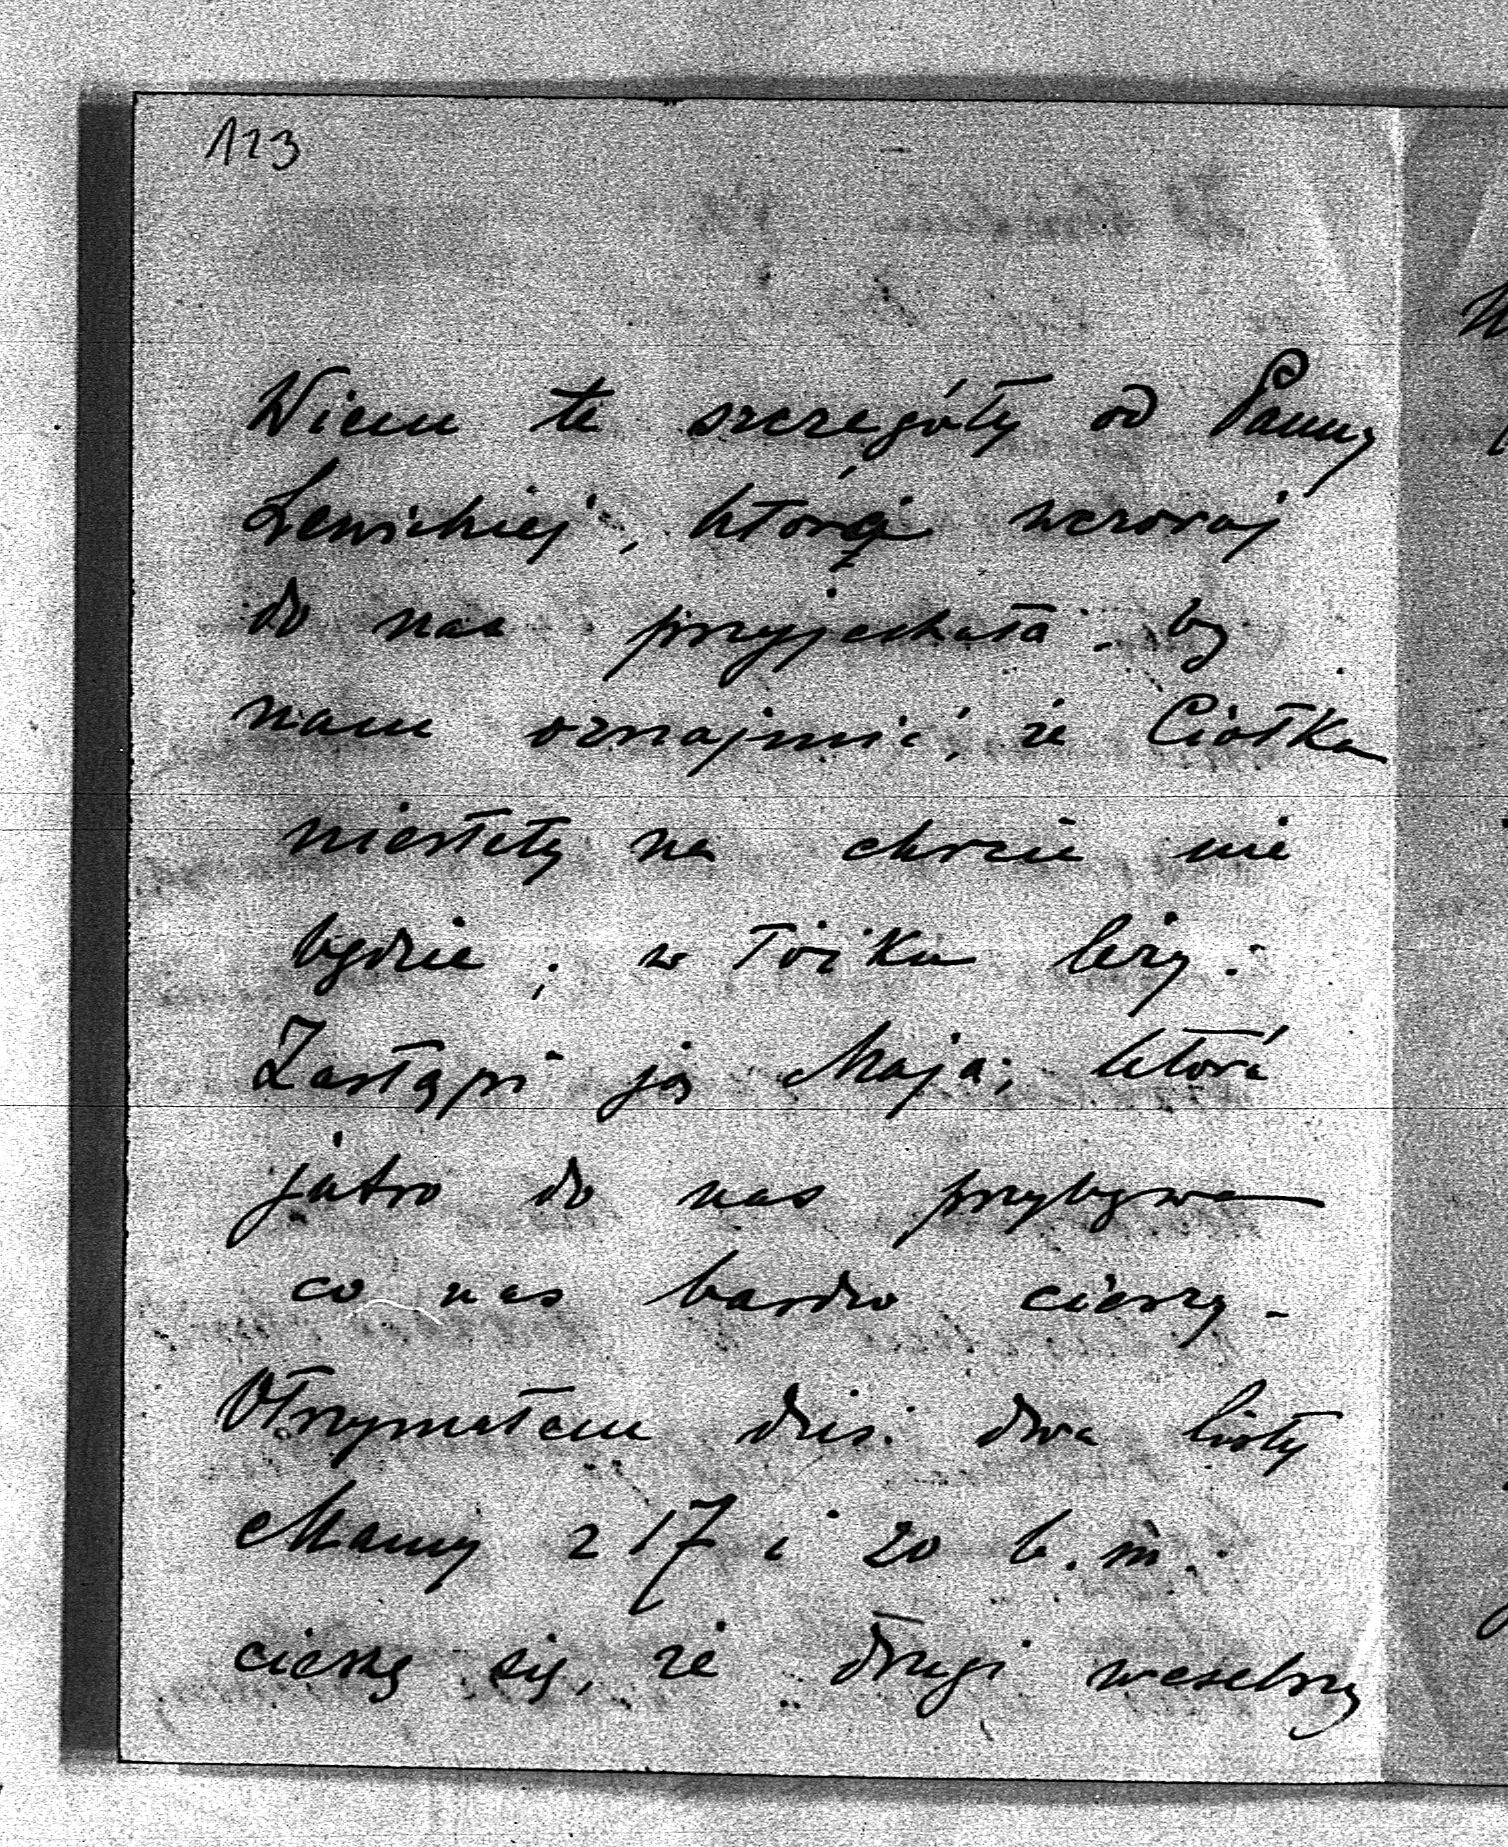 123
Wiem te szczegóły od Panny
Lewickiej, która wczoraj
do nas przyjechała by
nam oznajmić, że Ciotka
niestety na chrzcie nie
będzie; w łóżku leży.
Zastąpi ją Maja; która
jutro do nas przybywa
co nas bardzo cieszy.
Otrzymałam dziś dwa listy
Mamy z 17 i 20 b.m.
cieszę się, że drugi weselszy